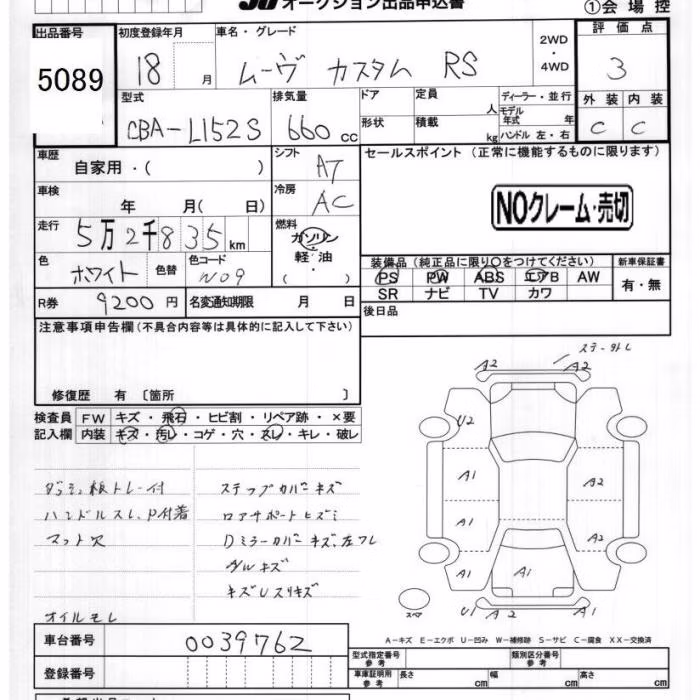 オークション出品申込書
①会場控
出品番号 初度登録年月 車名・グレード 2WD・4WD 評価点
5089 18 月 ムーヴ カスタム RS 3
型式 排気量 ドア 定員 人 ディーラー・並行 外装 内装
CBA-L152S 660 cc 形状 積載 kg モデル年式 年 ハンドル 左・右 C C
車歴 自家用・( ) シフト AT セールスポイント (正常に機能するものに限ります)
車検 年 月( 日) 冷房 AC
NOクレーム・売切
走行 5万2千835 km 燃料 ガソリン・軽油 ( )
色 ホワイト 色替 色コード W09
装備品 (純正品に限り○をつけてください) 新車保証書
PS PW ABS エアB AW 有・無
SR ナビ TV カワ
R券 9200 円 名変通知期限 月 日
後日品
注意事項申告欄 (不具合内容等は具体的に記入して下さい)
修復歴 有 〔箇所 〕
検査員 FW キズ・飛石・ヒビ割・リペア跡・×要
記入欄 内装 キズ・汚レ・コゲ・穴・スレ・キレ・破レ
A2 A2
U2
A1 A2
A1 A2
A1 A1
U1 A2 A1
スペア
板トレー付 ステップカバーキズ
ハンドルスレ、P付着 ロアサポートヒズミ
マット穴 Dミラーカバーキズ、左フレ
キズUスリキズ
オイルモレ
A-キズ E-エクボ U-凹み W-補修跡 S-サビ C-腐食 XX-交換済
車台番号 0039762
型式指定番号 参考 類別区分番号 参考
登録番号
車庫証明用 参考 長さ cm 幅 cm 高さ cm